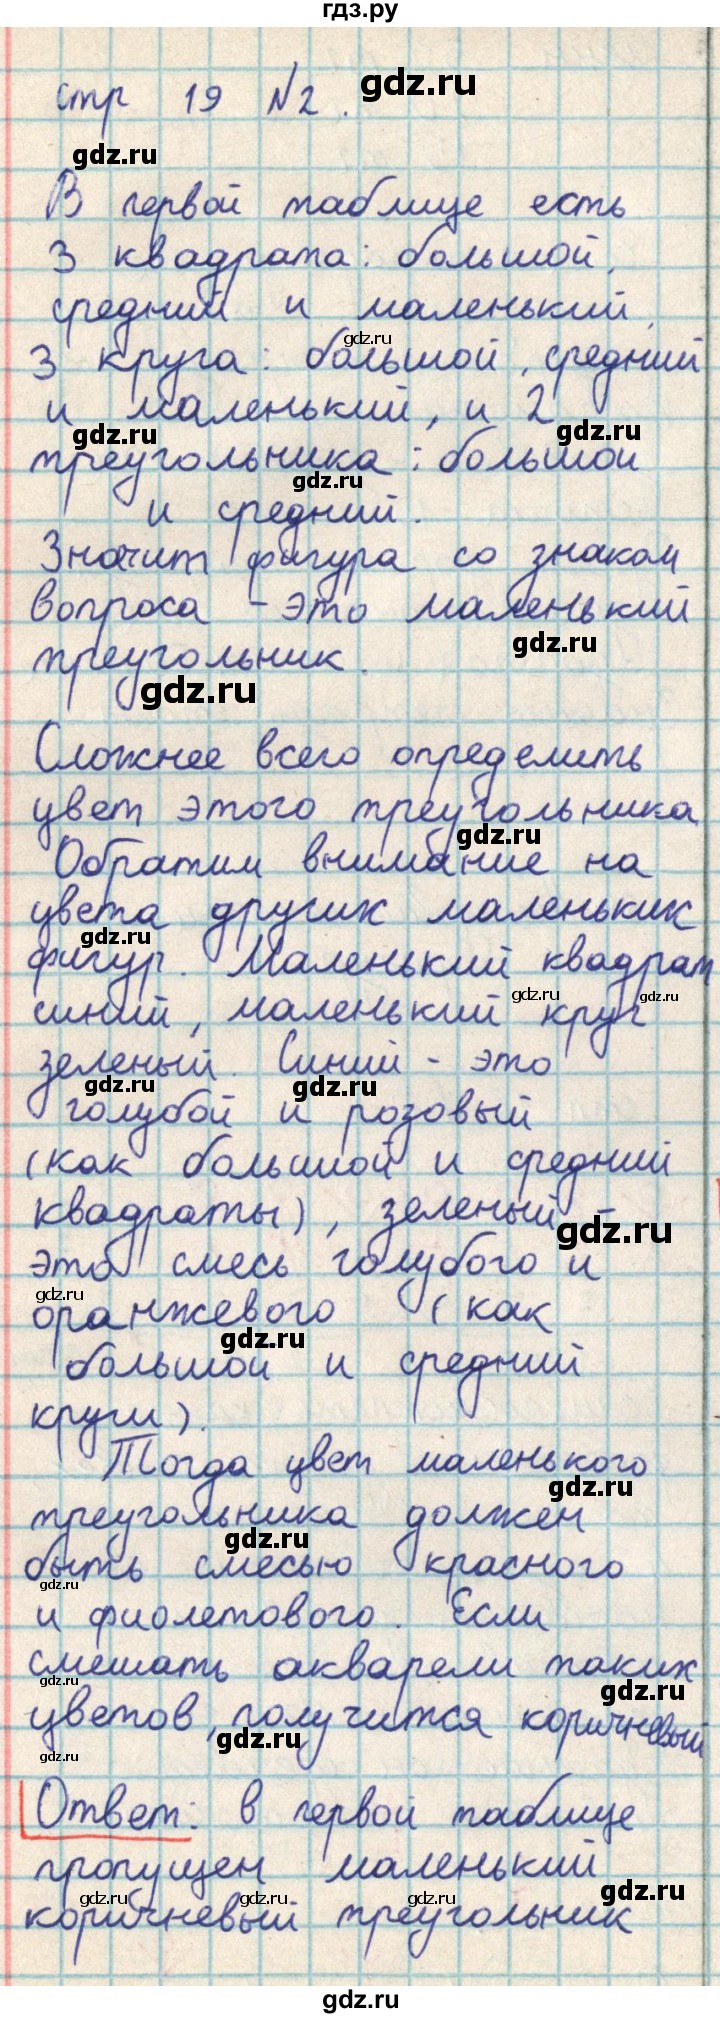 гдз.ру
стр 19 №2.
gdz.ru
gdz.ru
В первой таблице есть
3 квадрата: большой,
средний и маленький,
gdz.ru
3 круга: большой, средний
и маленький, и 2
gdz.ru
gdz.ru
треугольника: большой
gdz.ru
и средний.
Значит фигура со знаком
вопроса - это маленький
gdz.ru
треугольник.
gdz.ru
Сложнее всего определить
цвет этого треугольника
gdz.ru
Обратим внимание на
цвета других маленьких
gdz.ru
фигур. Маленький квадрат
gdz.ru
gdz.ru
синий, маленький круг
зеленый. Синий - это
gdz.ru
gdz.ru
голубой и розовый
(как большой и средний
квадраты), зеленый -
gdz.ru
это смесь голубого и
gdz.ru
оранжевого (как
gdz.ru
большой и средний
круги).
Тогда цвет маленького
gdz.ru
треугольника должен
gdz.ru
быть смесью красного
gdz.ru
и фиолетового. Если
смешать акварели таких
gdz.ru
gdz.ru
цветов, получится коричневый
gdz.ru
gdz.ru
Ответ: в первой таблице
пропущен маленький
gdz.ru
gdz.ru
gdz.ru
gdz.ru
коричневый треугольник
gdz.ru